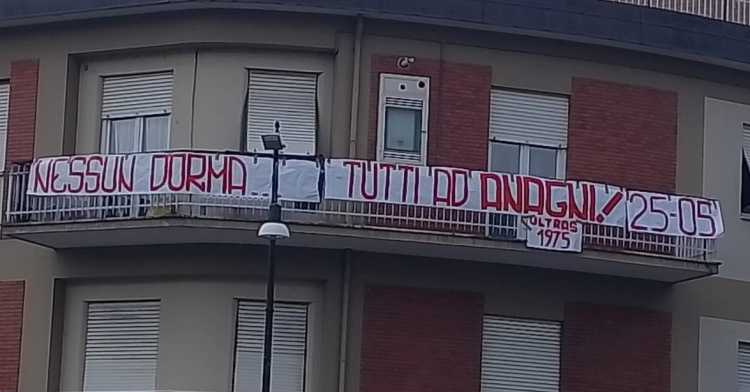 NESSUN DORMA... TUTTI AD ANAGNI! 25-05
ULTRAS
1975